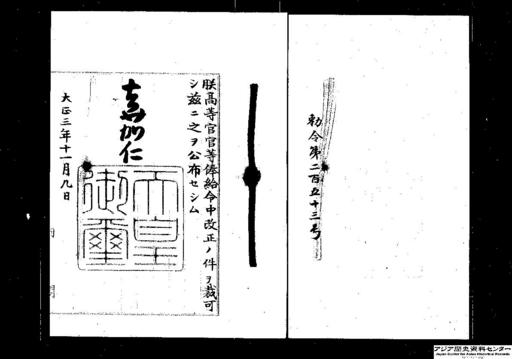 勅令第二百五十三号
朕高等官官等俸給令中改正ノ件ヲ裁可
シ茲ニ之ヲ公布セシム
嘉仁
天皇
御璽
大正三年十一月九日
アジア歴史資料センター
Japan Center for Asian Historical Records